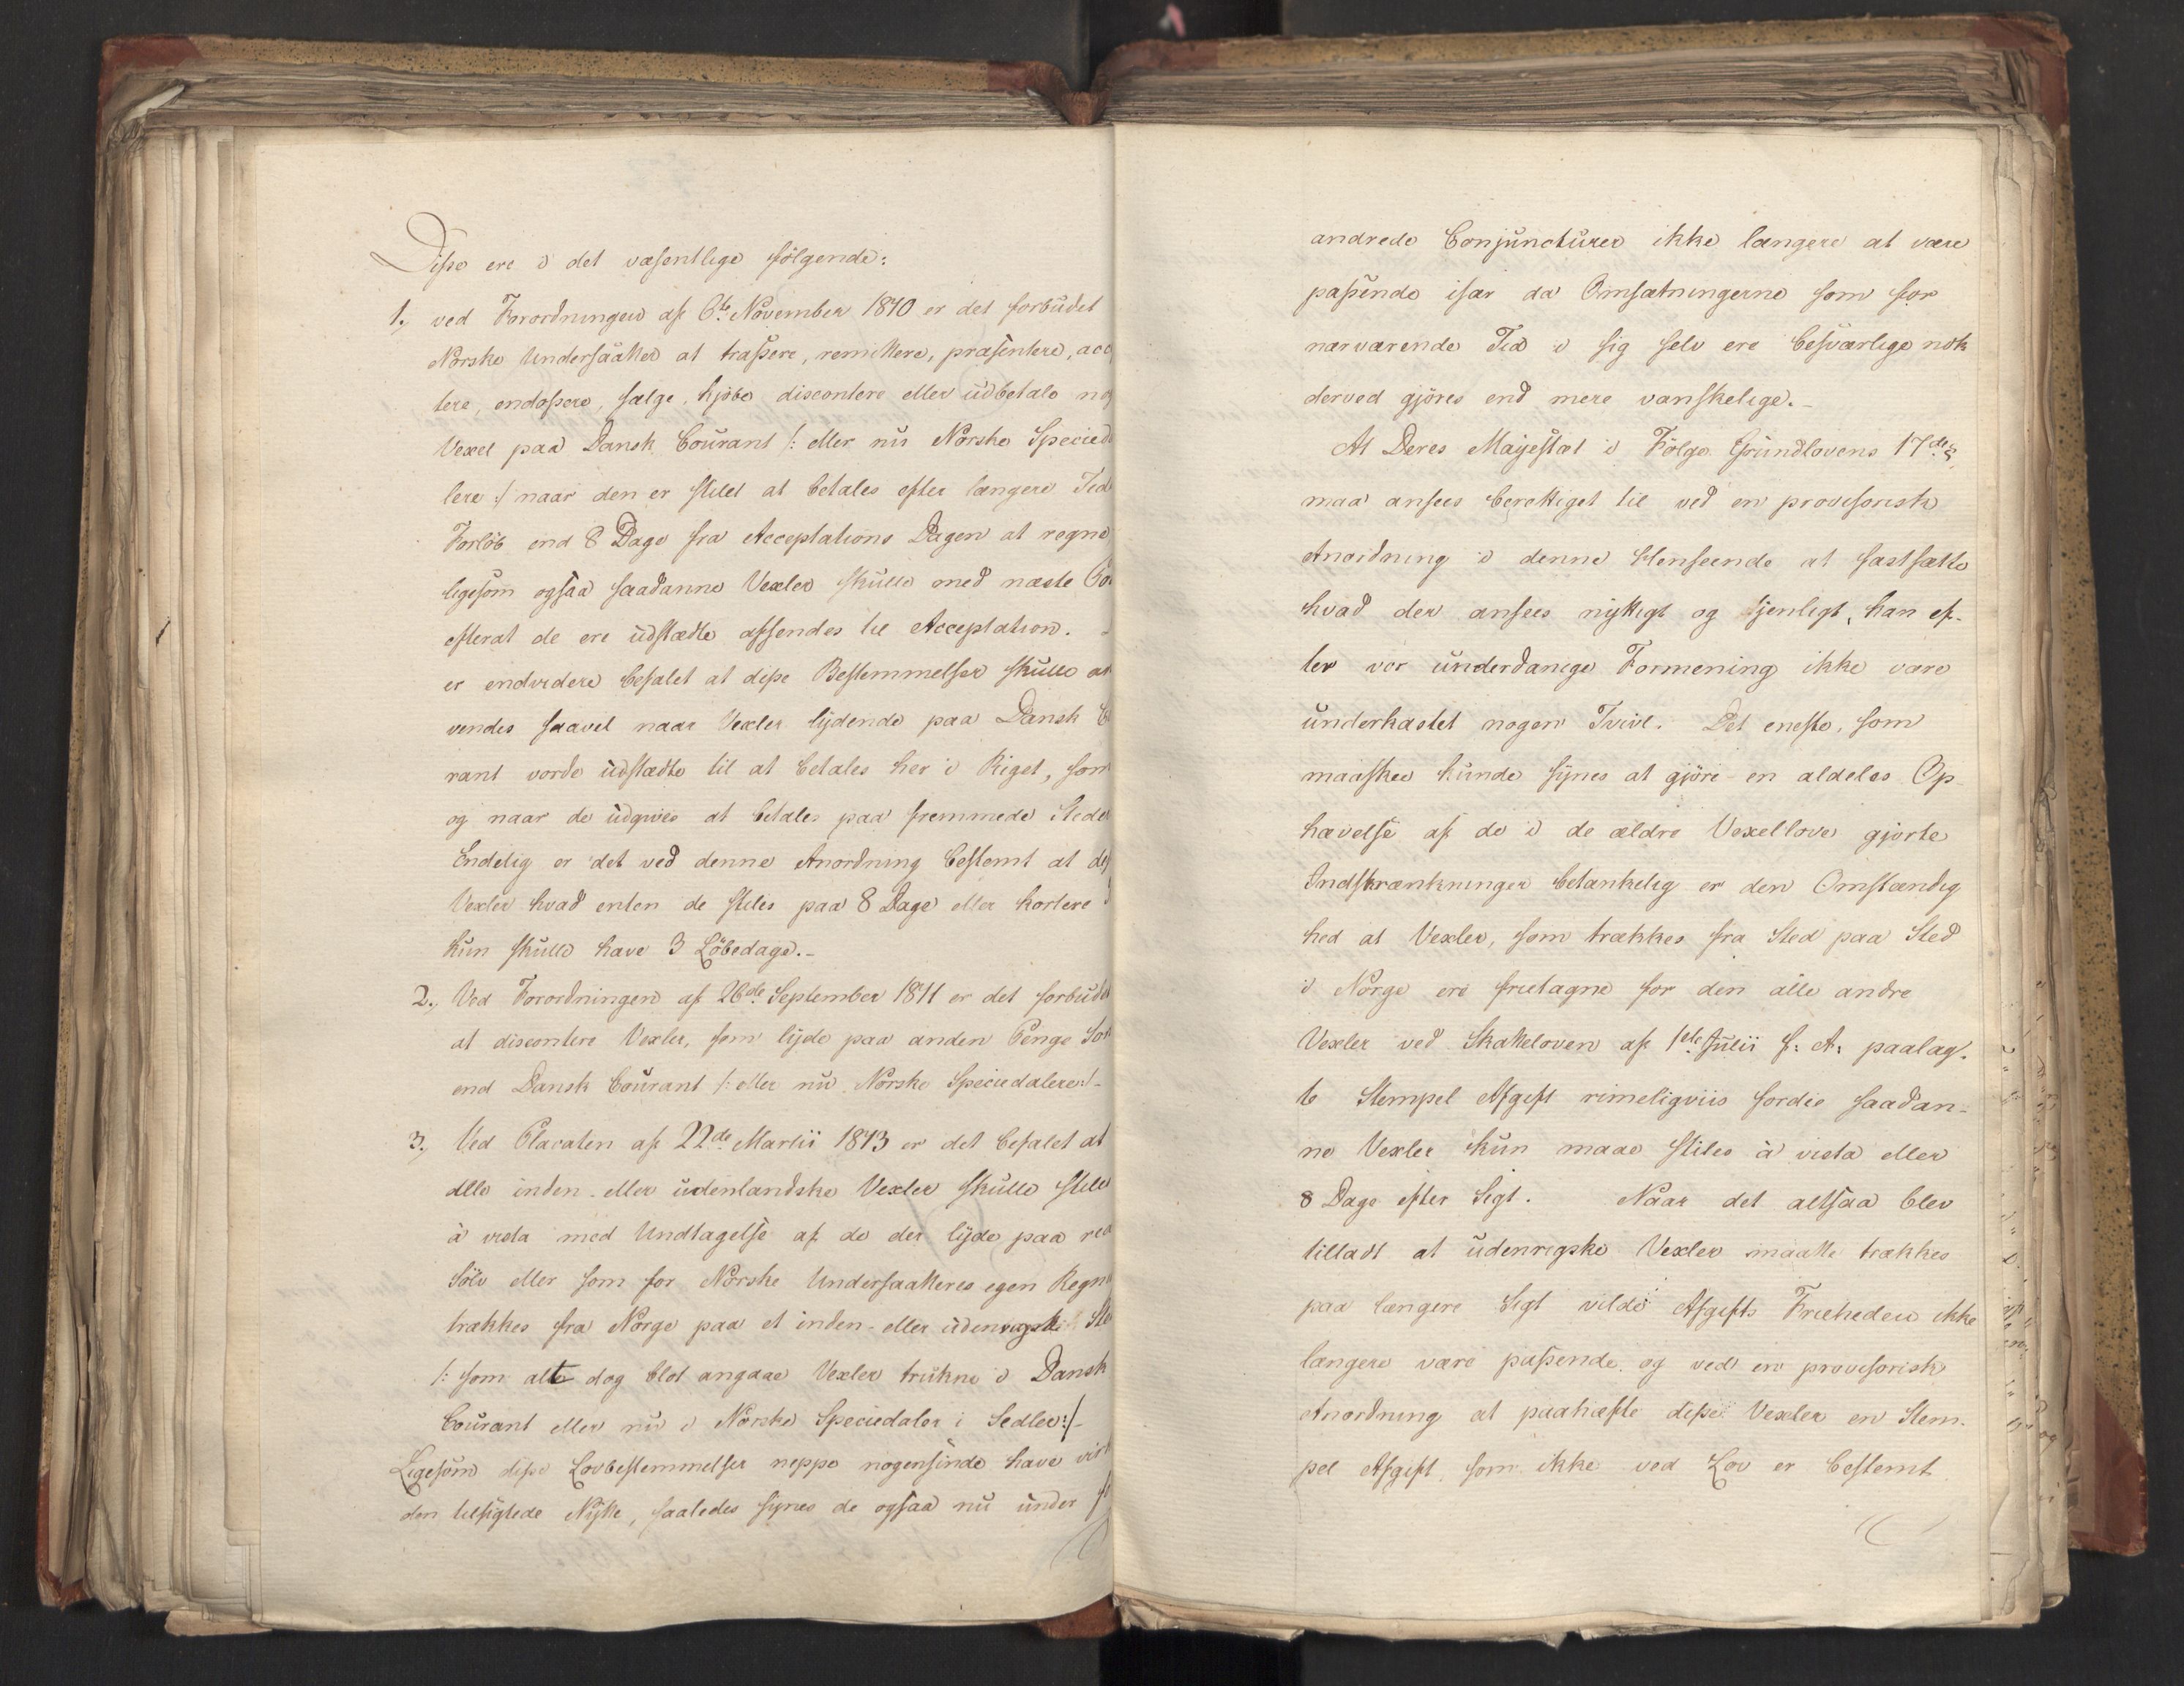 Disse ere i det væsentlige følgende:
1, ved Forordningen af 6te November 1810 er det forbudet
Norske Undersaatter at trassere, remittere, præsentere, acc
tere, endossere, sælge, kjøbe discontere eller udbetale nog
Vexel paa Dansk Courant /: eller nu Norske Specied
lere :/ naar den er stilet at betales efter længere Tid
Forløb end 8 Dage fra Acceptations Dagen at regne
ligesom ogsaa saadanne Vexler skulle med næste Po
efterat de ere udstædte afsendes til Acceptation. -
er endvidere befalet at disse Bestemmelser skulle an
vendes saavel naar Vexler lydende paa Dansk C
rant vorde udstædte til at betales her i Riget, som
og naar de udgives at betales paa fremmede Steder
Endelig er det ved denne Anordning bestemt at des
Vexler hvad enten de stiles paa 8 Dage eller kortere
kun skulle have 3 Løbedage.-
2., Ved Forordningen af 26de September 1811 er det forbudet
at discontere Vexler, som lyde paa anden Penge Sor
end Dansk Courant /: eller nu Norske Speciedalere:/-
3., Ved Placaten af 22de Martii 1813 er det befalet at
alle inden- eller udenlandske Vexler skulle stiles
à vista med Undtagelse af de der lyde paa ree
Sølv eller som for Norske Undersaatteres egen Regn
trækkes fra Norge paa et inden- eller udenrigsk Ste
/: som alt dog blot angaae Vexler trukne i Dansk
Courant eller nu i Norske Speciedaler i Sedler:/-
Ligesom disse Lovbestemmelser neppe nogensinde have vist
den tilsigtede Nytte, saaledes synes de ogsaa nu under
andrede Conjuncturer ikke længere at være
passende især da Omsætningerne som for
nærværende Tid i sig selv ere besværlige nok
derved gjøres end mere vanskelige.-
At Deres Majestæt i Følge Grundlovens 17de §
maa ansees berettiget til ved en provisorisk
Anordning i denne Henseende at fastsætte
hvad der ansees nyttigt og tjenligt, kan ef-
ter vor underdanige Formening ikke være
underkastet nogen Tvivl. Det eneste, som
maaskee kunde synes at gjøre en aldeles Op-
hævelse af de i de ældre Vexellove gjorte
Indskrænkninger betænkelig er den Omstændig
hed at Vexler, som trækkes fra Sted paa Sted
i Norge ere fritagne for den alle andre
Vexler ved Skatteloven af 1ste Julii f: A: paalag-
te Stempel Afgift rimeligviis fordie saadan-
ne Vexler kun maae stiles à vista eller
8 Dage efter Sigt. Naar det altsaa blev
tilladt at udenrigske Vexler maatte trækkes
paa længere Sigt vilde Afgifts Friheden ikke
længere være passende og ved en provisorisk
Anordning at paahæfte disse Vexler en Stem-
pel Afgift, som ikke ved Lov er bestemt